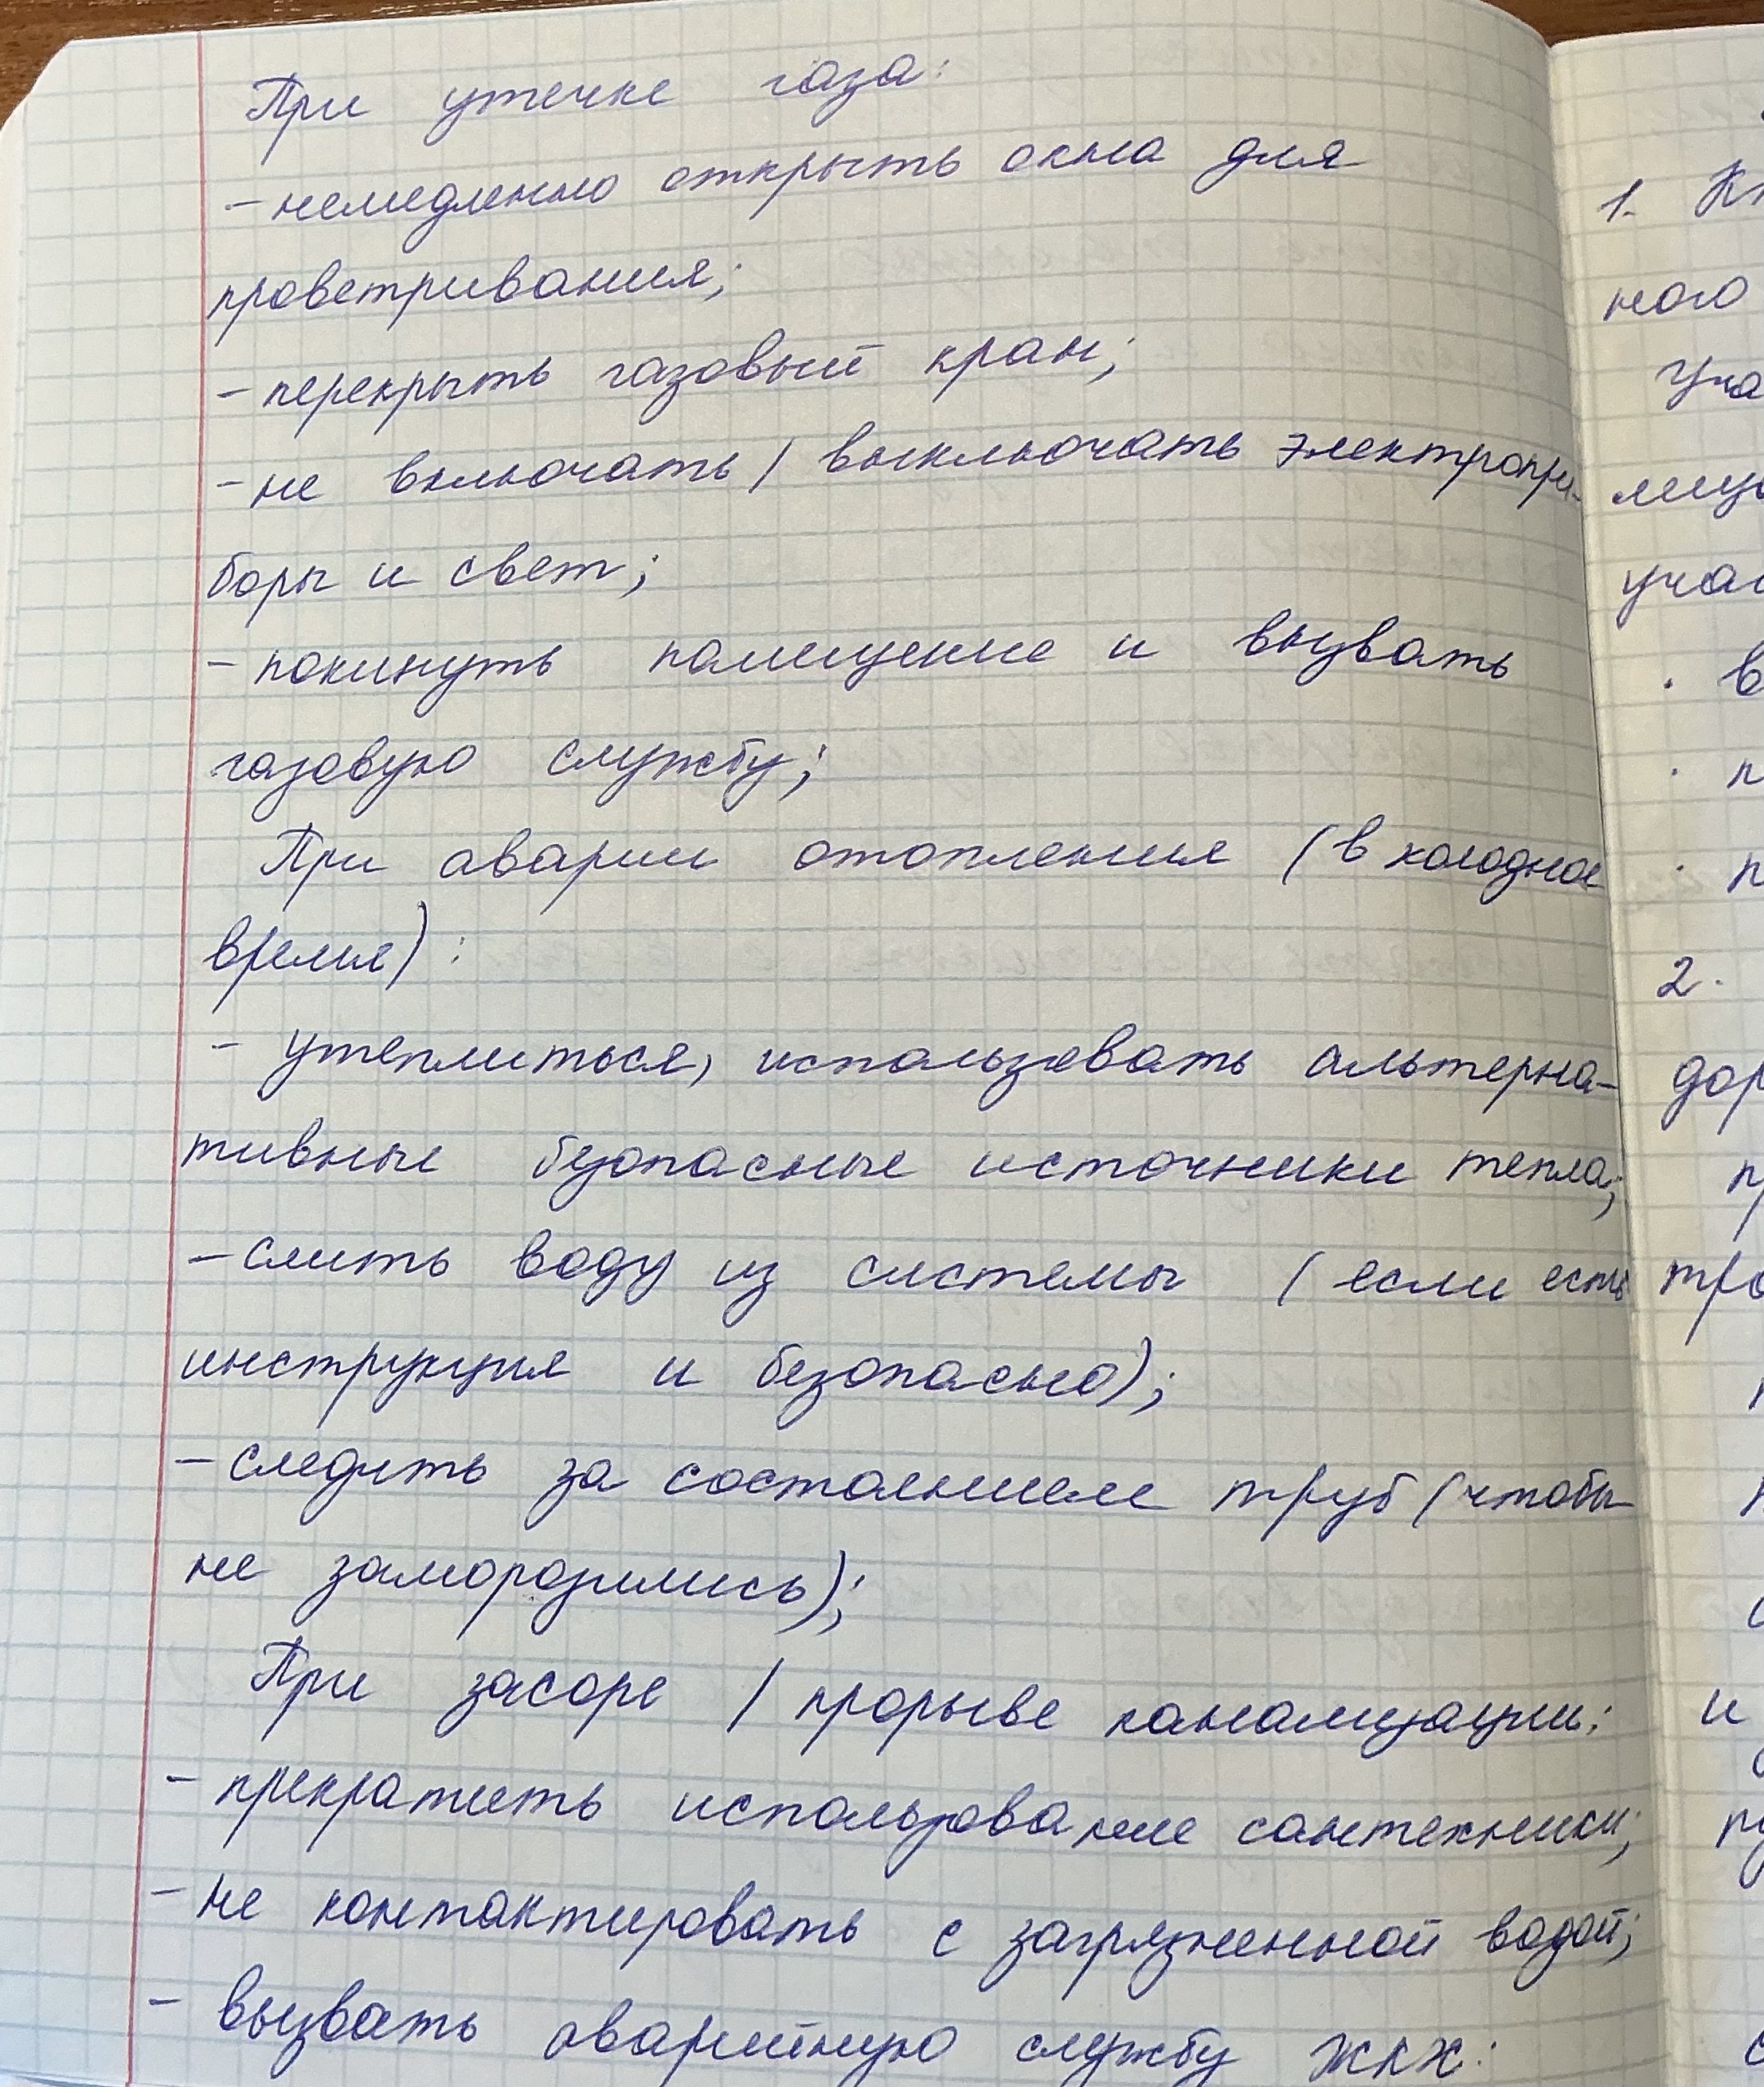 При утечке газа:
- немедленно открыть окна для
проветривания;
- перекрыть газовый кран;
- не включать / выключать электропри-
боры и свет;
- покинуть помещение и вызвать
газовую службу;
При аварии отопления (в холодное
время):
- утеплиться, использовать альтерна-
тивные безопасные источники тепла;
- слить воду из системы (если есть
инструкция и безопасно);
- следить за состоянием труб (чтобы
не заморозились);
При засоре / прорыве канализации:
- прекратить использование сантехники;
- не контактировать с загрязненной водой;
- вызвать аварийную службу ЖКХ:
1.
ного
2.
и